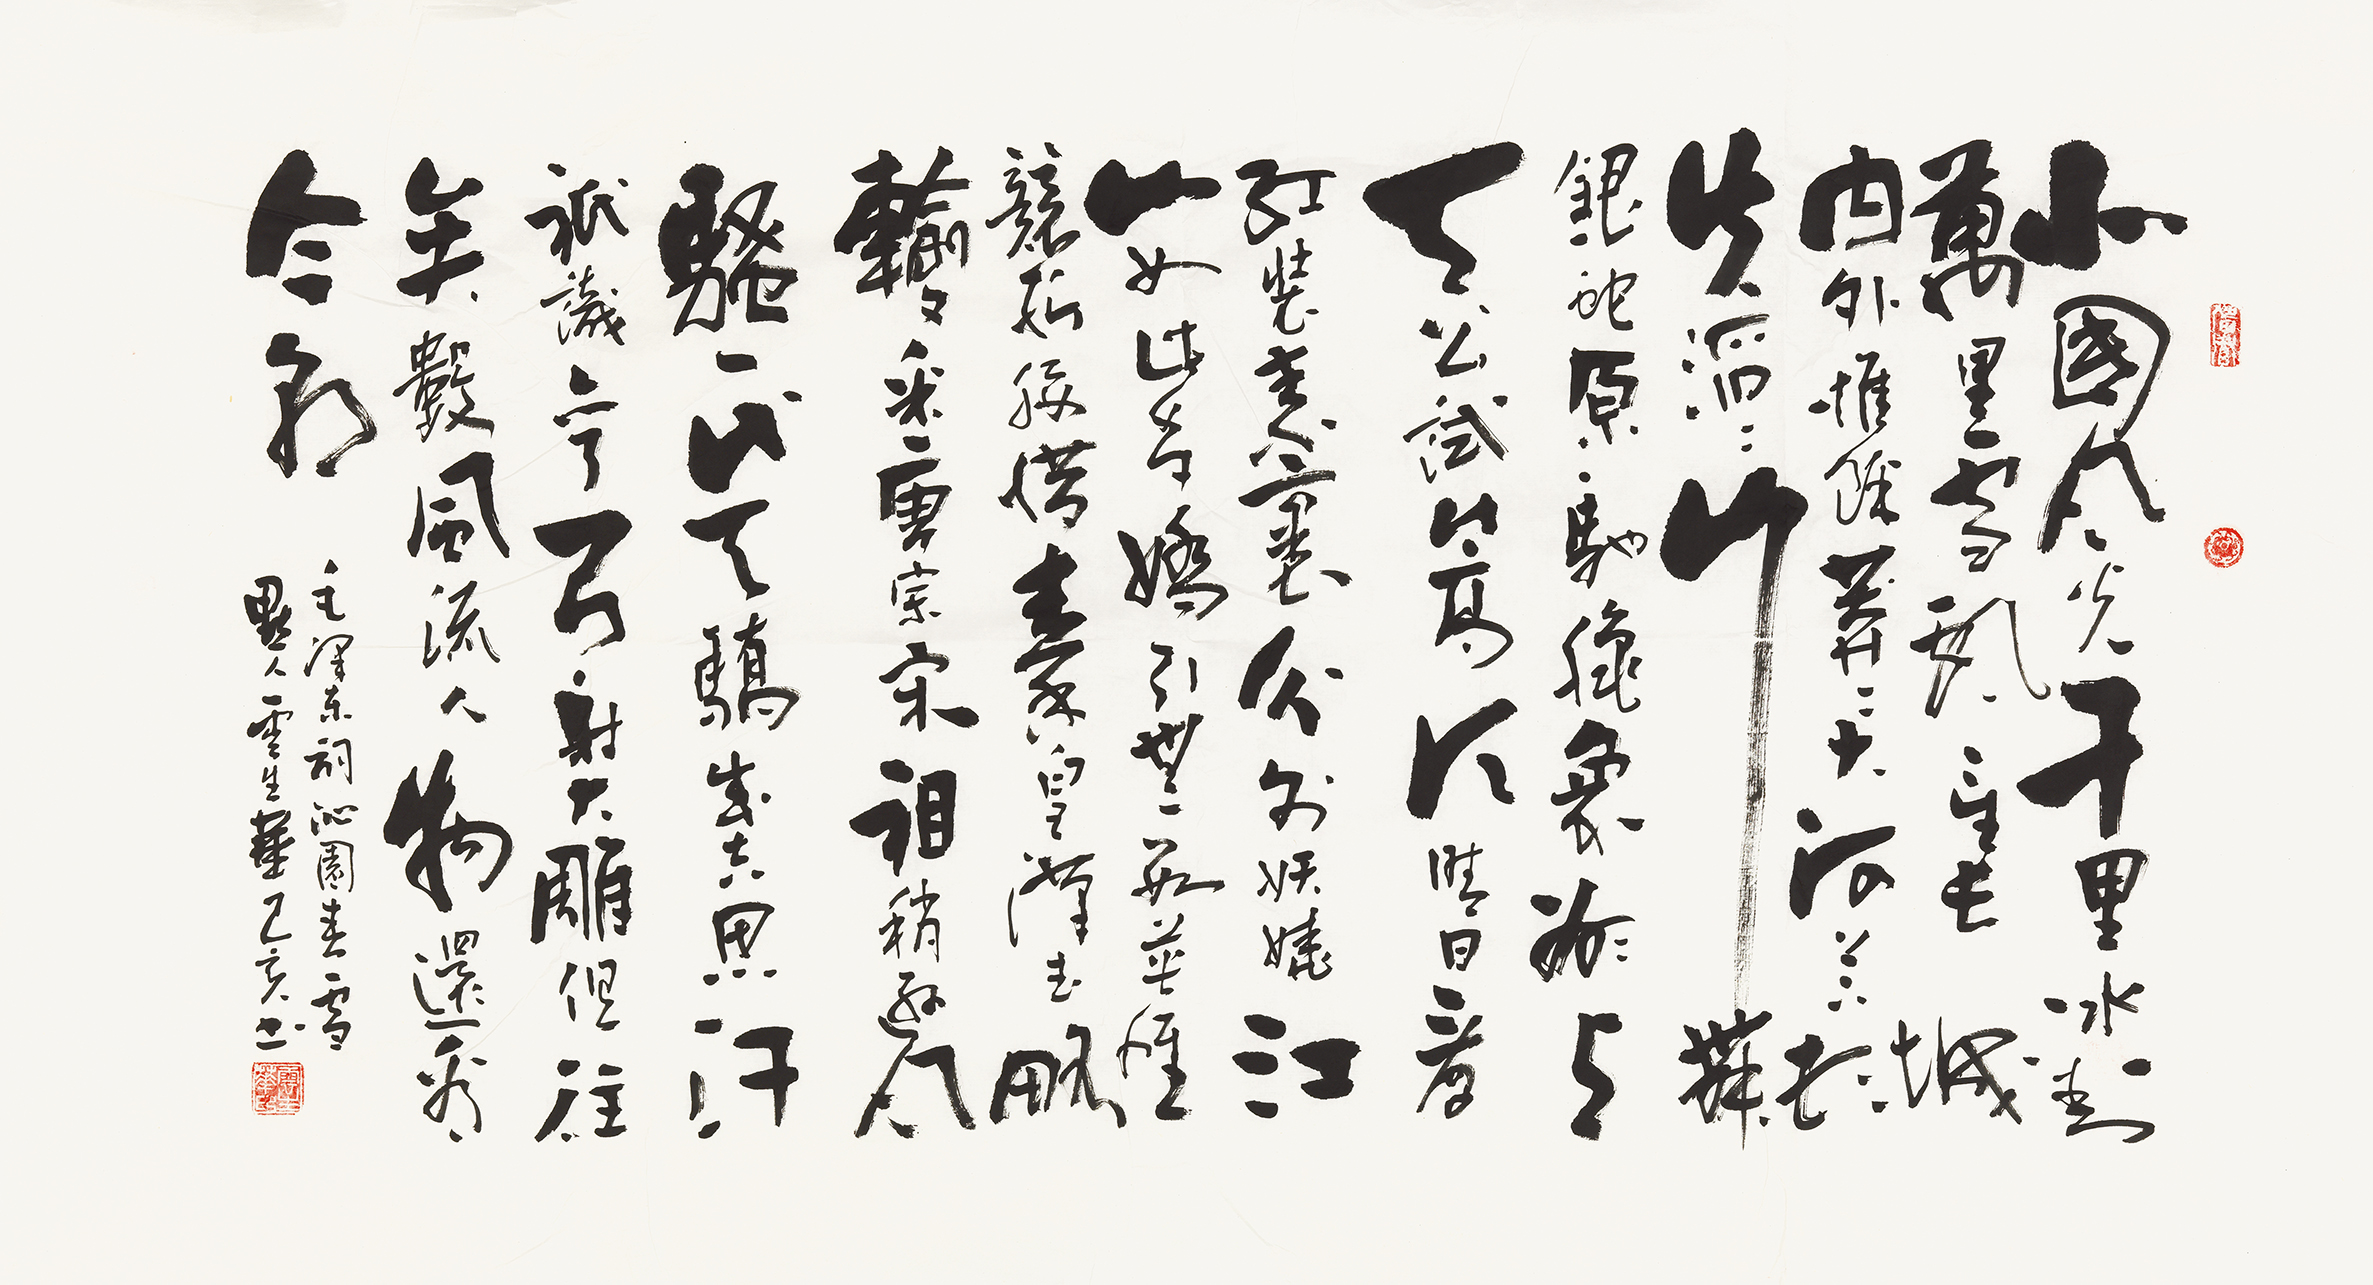 北國風光千里冰封
萬里雪飄望長城
内外惟餘莽〻大河上下頓
失滔〻山舞
銀蛇原馳蠟象欲与
天公試比高須晴日看
紅裝素裹分外妖嬈江
山如此多嬌引無數英雄
競折腰惜秦皇漢武略
輸文采唐宗宋祖稍遜風
騷一代天驕成吉思汗
祇識彎弓射大雕俱往
矣數風流人物還看
今朝
毛澤東詞沁園春雪
黟人雲生華己亥書